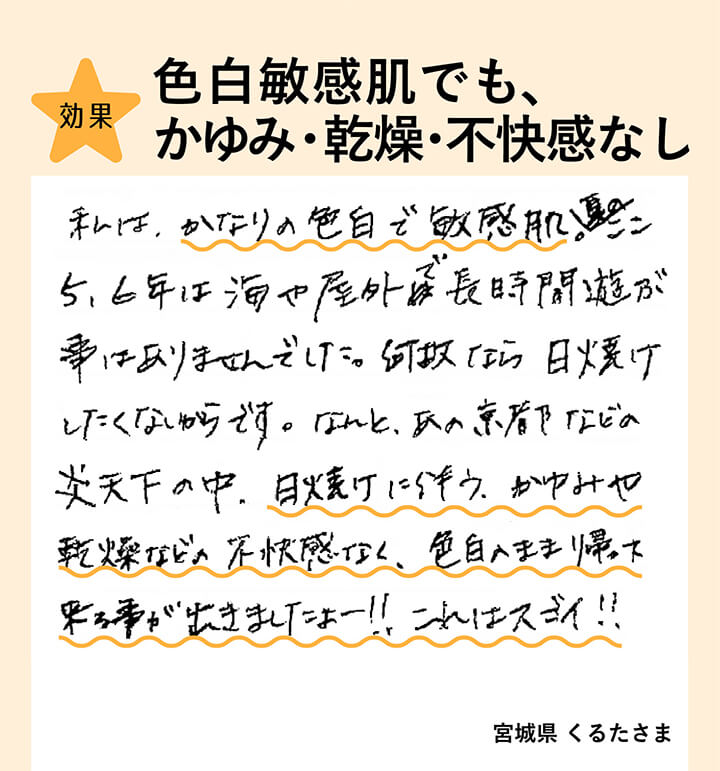 効果
色白敏感肌でも、
かゆみ・乾燥・不快感なし
私は、かなりの色白で敏感肌!ここ
5、6年は海や屋外で長時間遊ぶ
事はありませんでした。何故なら日焼け
したくないからです。なんと、あの京都などの
炎天下の中、日焼けに伴う、かゆみや
乾燥などの不快感なく、色白のまま帰って
来る事が出きましたよー!!これはスゴイ!!
宮城県 くるたさま